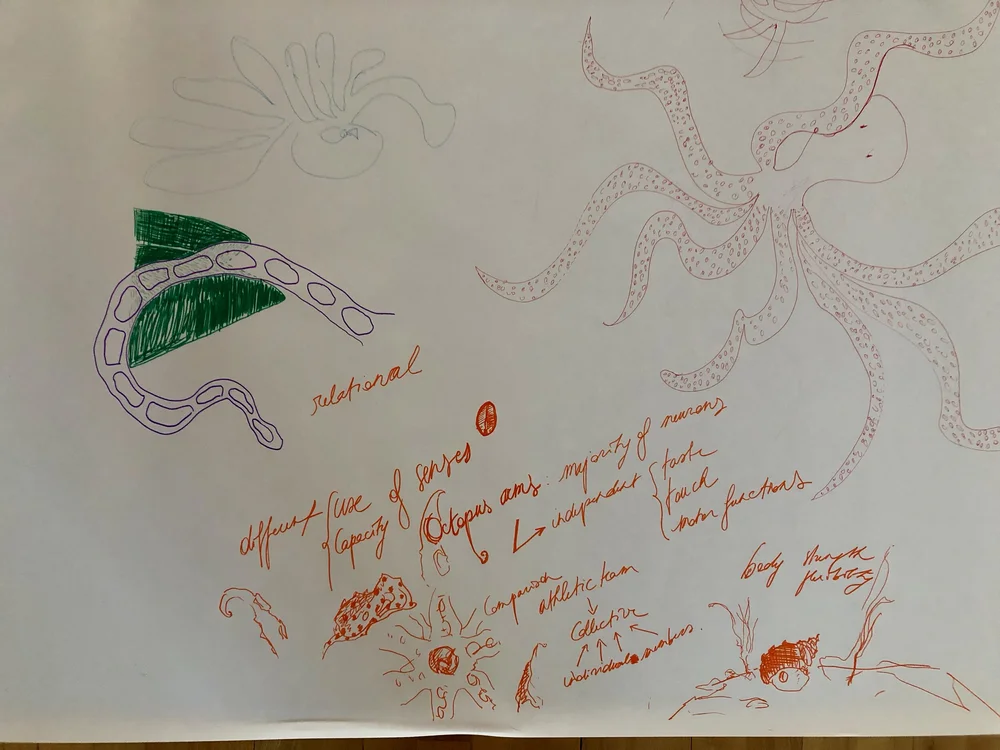 relational
different { use of senses
capacity
Octopus arms: majority of neurons
↳ independent { taste
touch
motor functions
Comparison
athletic team
↓
Collective
individual members.
body strength
flexibility